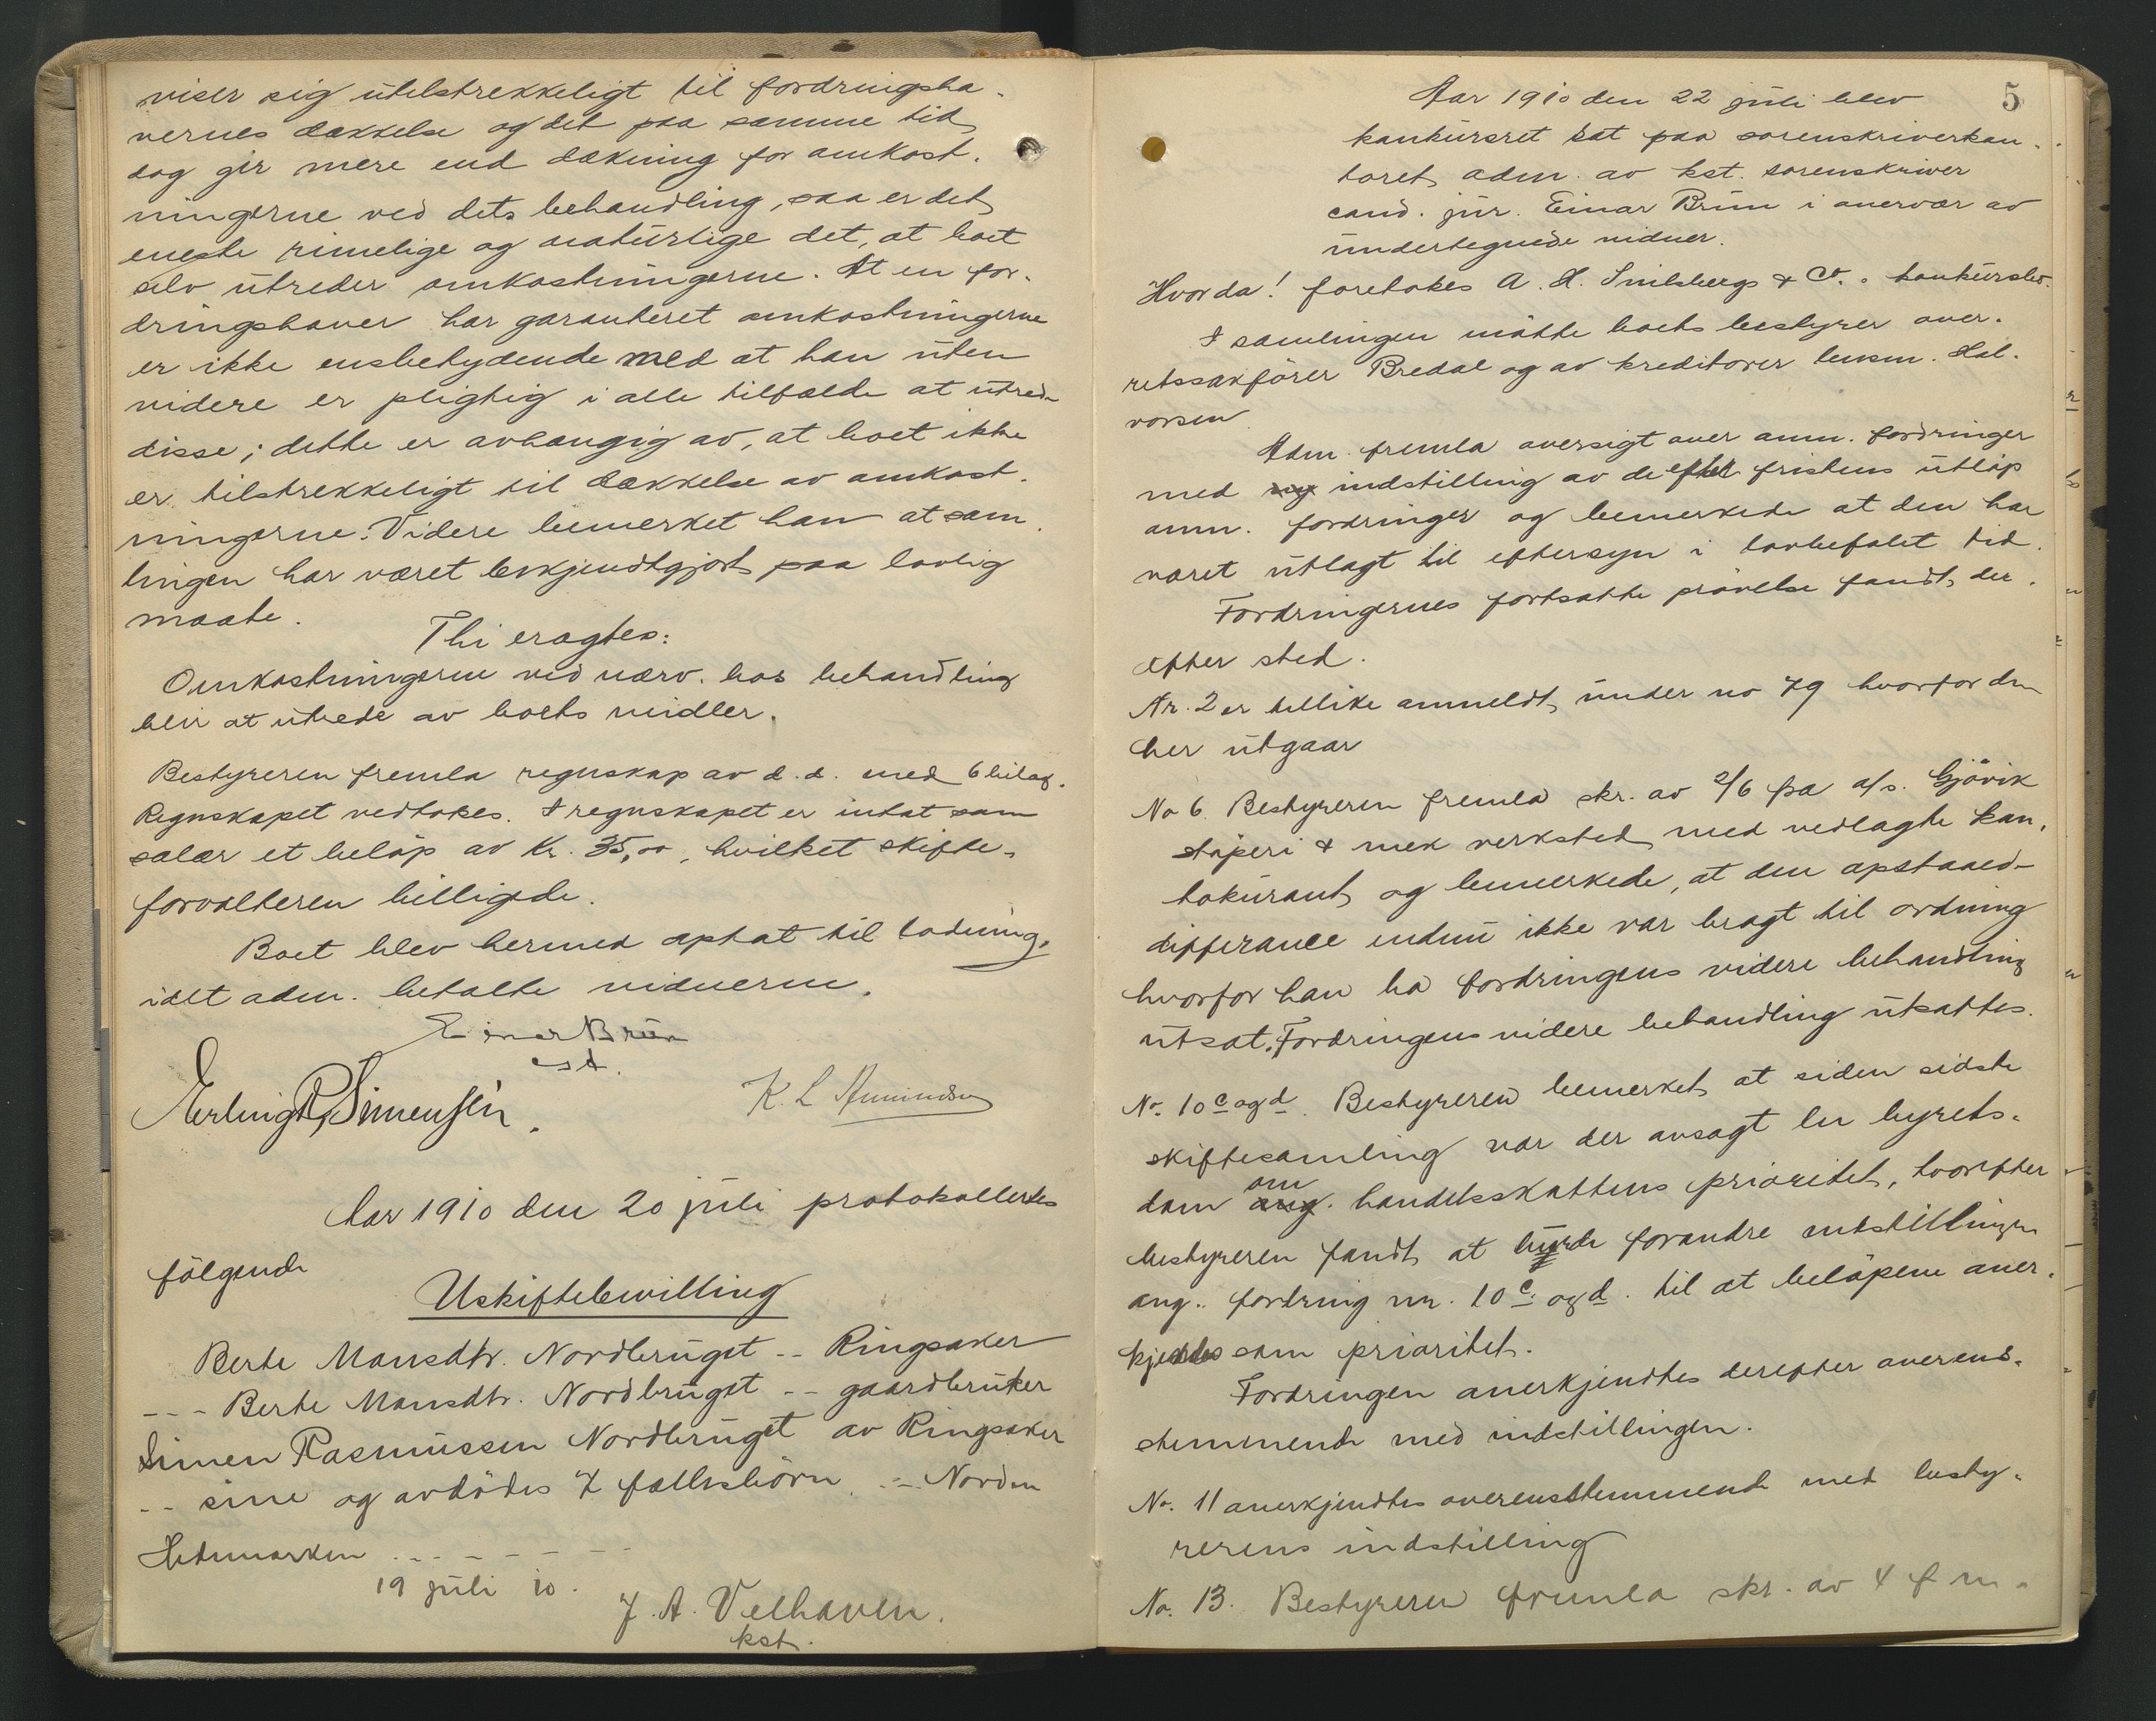 viser sig utilstrekkeligt til fordringsha-
vernes dækkelse og det paa samme tid
dog gir mere end dækning for omkost-
ningerne ved dets behandling, saa er det
eneste rimelige og naturlige det, at boet
selv utreder omkostningerne. At en for-
dringshaver har garanteret omkostningerne
er ikke ensbetydende med at han uten
videre er pligtig i alle tilfælde at utrede
disse; dette er avhængig av, at boet ikke
er tilstrekkeligt til dækkelse av omkost-
ningerne. Videre bemerket han at sam-
lingen har været bekjendtgjort paa lovlig
maate.
Thi eragtes:
Omkostningerne ved nærv. bos behandling
blir at utrede av boets midler.
Bestyreren fremla regnskap av d.d. med 6 bilag.
Regnskapet vedtokes. I regnskapet er intat som
salær et beløp av Kr. 35,00, hvilket skifte-
forvalteren billigede.
Boet blev hermed optat til lodning,
idet adm. betalte vidnerne.
Einar Bruun
cst.
Erling R. Simensen.
K. L. Amundsen
Aar 1910 den 20 juli protokollertes
følgende
Uskiftebevilling
Berte Mansdtr. Nordbruget -- Ringsaker
--- Berte Mansdtr. Nordbruget -- gaardbruker
Simen Rasmussen Nordbruget av Ringsaker
-- sine og avdødes 7 fællesbörn. -- Norden
Hedemarken - - - - - -
19 juli 10.
J. A. Velhaven.
kst.
5
Aar 1910 den 22 juli blev
konkursret sat paa sorenskriverkon-
toret adm. av kst. sorenskriver
cand. jur. Einar Bruun i overvær av
undertegnede vidner.
Hvorda! foretokes A. H. Smilsbergs & Co.s konkursbo.
I samlingen mötte boets bestyrer over-
retssakförer Bredal og av kreditorer lensm. Hal-
vorsen
Adm. fremla oversigt over anm. fordringer
med ny indstilling av de efter fristens utlöp
anm. fordringer og bemerkede at den har
været utlagt til eftersyn i lovbefalet tid.
Fordringernes fortsatte prövelse fandt der-
efter sted.
Nr. 2 er tillike anmeldt under no 79 hvorfor den
her utgaar
No 6. Bestyreren fremla skr. av 2/6 fra a/s. Gjövik
stöperi & mek verksted med vedlagte kon-
tokurant og bemerkede, at den opstaaede
differance endnu ikke var bragt til ordning
hvorfor han ba fordringens videre behandling
utsat. Fordringens videre behandling utsattes.
No. 10 c og d. Bestyreren bemerket at siden sidste
skiftesamling var der avsagt en byrets-
dom om ang. handelsskattens prioritet, hvorefter
bestyreren fandt at burde forandre indstillingen
ang. fordring nr. 10 c. og d. til at beløpene aner-
kjendes som prioritet.
Fordringen anerkjendtes derefter overens-
stemmende med indstillingen.
No. 11 anerkjendtes overensstemmende med besty-
rerens indstilling
No. 13. Bestyreren fremla skr. av 4 f m.